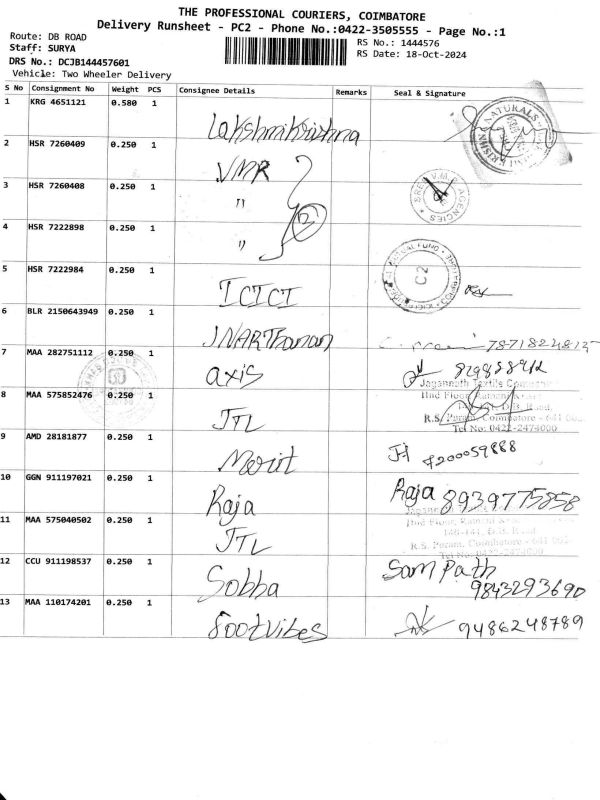 THE PROFESSIONAL COURIERS, COIMBATORE
Delivery Runsheet - PC2 - Phone No.:0422-3505555 - Page No.:1
Route: DB ROAD
RS No.: 1444576
Staff: SURYA
RS Date: 18-Oct-2024
DRS No.: DCJB144457601
Vehicle: Two Wheeler Delivery
S No Consignment No Weight PCS Consignee Details Remarks Seal & Signature
1 KRG 4651121 0.580 1 Lakshmikrishna
2 HSR 7260409 0.250 1 VMR
3 HSR 7260408 0.250 1 "
4 HSR 7222898 0.250 1 "
5 HSR 7222984 0.250 1 ICICI
C2
6 BLR 2150643949 0.250 1 JNARThanan
7 MAA 282751112 0.250 1 axis
Jagannath Textile
8 MAA 575852476 0.250 1 JTL
IInd Floor,
D.B. Road,
R.S. Puram, Coimbatore - 641 002
Tel No: 0422-2474000
9 AMD 28181877 0.250 1 Merit 7200059888
10 GGN 911197021 0.250 1 Raja Raja 8939775858
11 MAA 575040502 0.250 1 JTL
IInd Floor,
D.B. Road
R.S. Puram, Coimbatore - 641 002
Tel No:0422-2474000
12 CCU 911198537 0.250 1 Sobha Sampath
9843293690
13 MAA 110174201 0.250 1 footvibes 9486248789